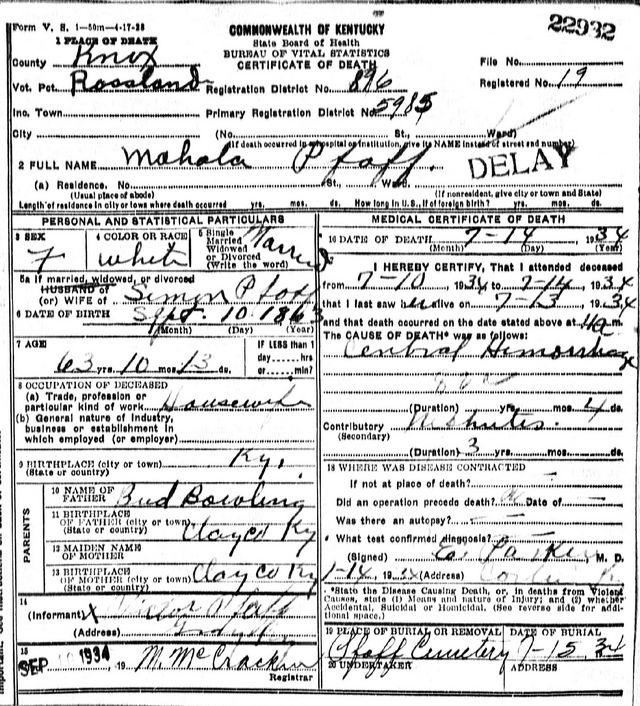 Form V. S. 1—50m—4-17-28
22932
COMMONWEALTH OF KENTUCKY
State Board of Health
BUREAU OF VITAL STATISTICS
CERTIFICATE OF DEATH
1 PLACE OF DEATH
County Knox
Vot. Pct. Rossland
Inc. Town
City
Registration District No. 896
Primary Registration District No. 5985
File No.
Registered No. 19
(No. St., Ward)
(If death occurred in a hospital or institution, give its NAME instead of street and number)
2 FULL NAME Mahala Pfaff.
DELAY
(a) Residence. No. St., Ward.
(Usual place of abode)
(If nonresident, give city or town and State)
Length of residence in city or town where death occurred yrs. mos. ds. How long in U.S., if of foreign birth? yrs. mos. ds.
PERSONAL AND STATISTICAL PARTICULARS
3 SEX
F
4 COLOR OR RACE
white
5 Single
Married
Widowed
or Divorced
(Write the word)
Married
5a If married, widowed, or divorced
HUSBAND of
(or) WIFE of Simon
6 DATE OF BIRTH Sept. 10. 1863
(Month) (Day) (Year)
7 AGE
63 yrs. 10 mos. 13 ds.
IF LESS than 1
day hrs
or min?
8 OCCUPATION OF DECEASED
(a) Trade, profession or
particular kind of work Housewife
(b) General nature of industry,
business or establishment in
which employed (or employer)
9 BIRTHPLACE (city or town) Ky.
(State or country)
PARENTS
10 NAME OF
FATHER Bud Bowling
11 BIRTHPLACE
OF FATHER (city or town) Clay co Ky
(State or country)
12 MAIDEN NAME
OF MOTHER
13 BIRTHPLACE
OF MOTHER (city or town) Clay co Ky
(State or country)
14
(Informant) X
(Address)
15
SEP 1934, 19 M. McCracken
Registrar
MEDICAL CERTIFICATE OF DEATH
16 DATE OF DEATH 7-14, 1934
(Month) (Day) (Year)
I HEREBY CERTIFY, That I attended deceased
from 7-10 1934 to 7-14, 1934
that I last saw her alive on 7-13, 1934
and that death occurred on the date stated above at 4 a m.
The CAUSE OF DEATH* was as follows:
Central Hemorrhage
(Duration) yrs. mos. 4 ds.
Contributory
(Secondary)
(Duration) 3 yrs. mos. ds.
18 WHERE WAS DISEASE CONTRACTED
If not at place of death?
Did an operation precede death? Date of
Was there an autopsy?
What test confirmed diagnosis?
(Signed) M. D.
1-14, 1934 (Address)
*State the Disease Causing Death, or, in deaths from Violent
Causes, state (1) Means and nature of Injury; and (2) whether
Accidental, Suicidal or Homicidal. (See reverse side for addi-
tional space.)
19 PLACE OF BURIAL OR REMOVAL
Pfaff Cemetery
DATE OF BURIAL
7-15, 34
20 UNDERTAKER
ADDRESS